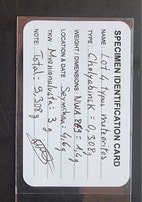 SPECIMEN IDENTIFICATION CARD
Lot 4 types meteorites
TYPE: Chelyabinsk = 0,308g
WEIGHT / DIMENSIONS: NWA 869 = 1,4g
LOCATION & DATE: Sarıçiçek: 4,6g
Muonionalusta: 3g
NOTE: Total: 9,308g